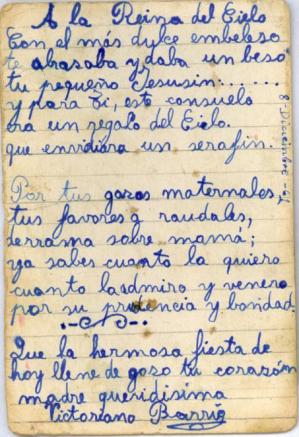 A la Reina del Cielo
Con el más dulce embeleso
te abrasaba y daba un beso
tu pequeño Jesusin.......
y para Ti, este consuelo
era un regalo del Cielo.
que envidiara un serafin.
Por tus gozos maternales,
tus favores a raudales,
derrama sobre mamá;
ya sabes cuanto la quiero
cuanto la admiro y venero
por su prudencia y bondad.
Que la hermosa fiesta de
hoy llene de goso tu corazón
madre queridisima
Victoriano Barrio
8-Diciembre-61